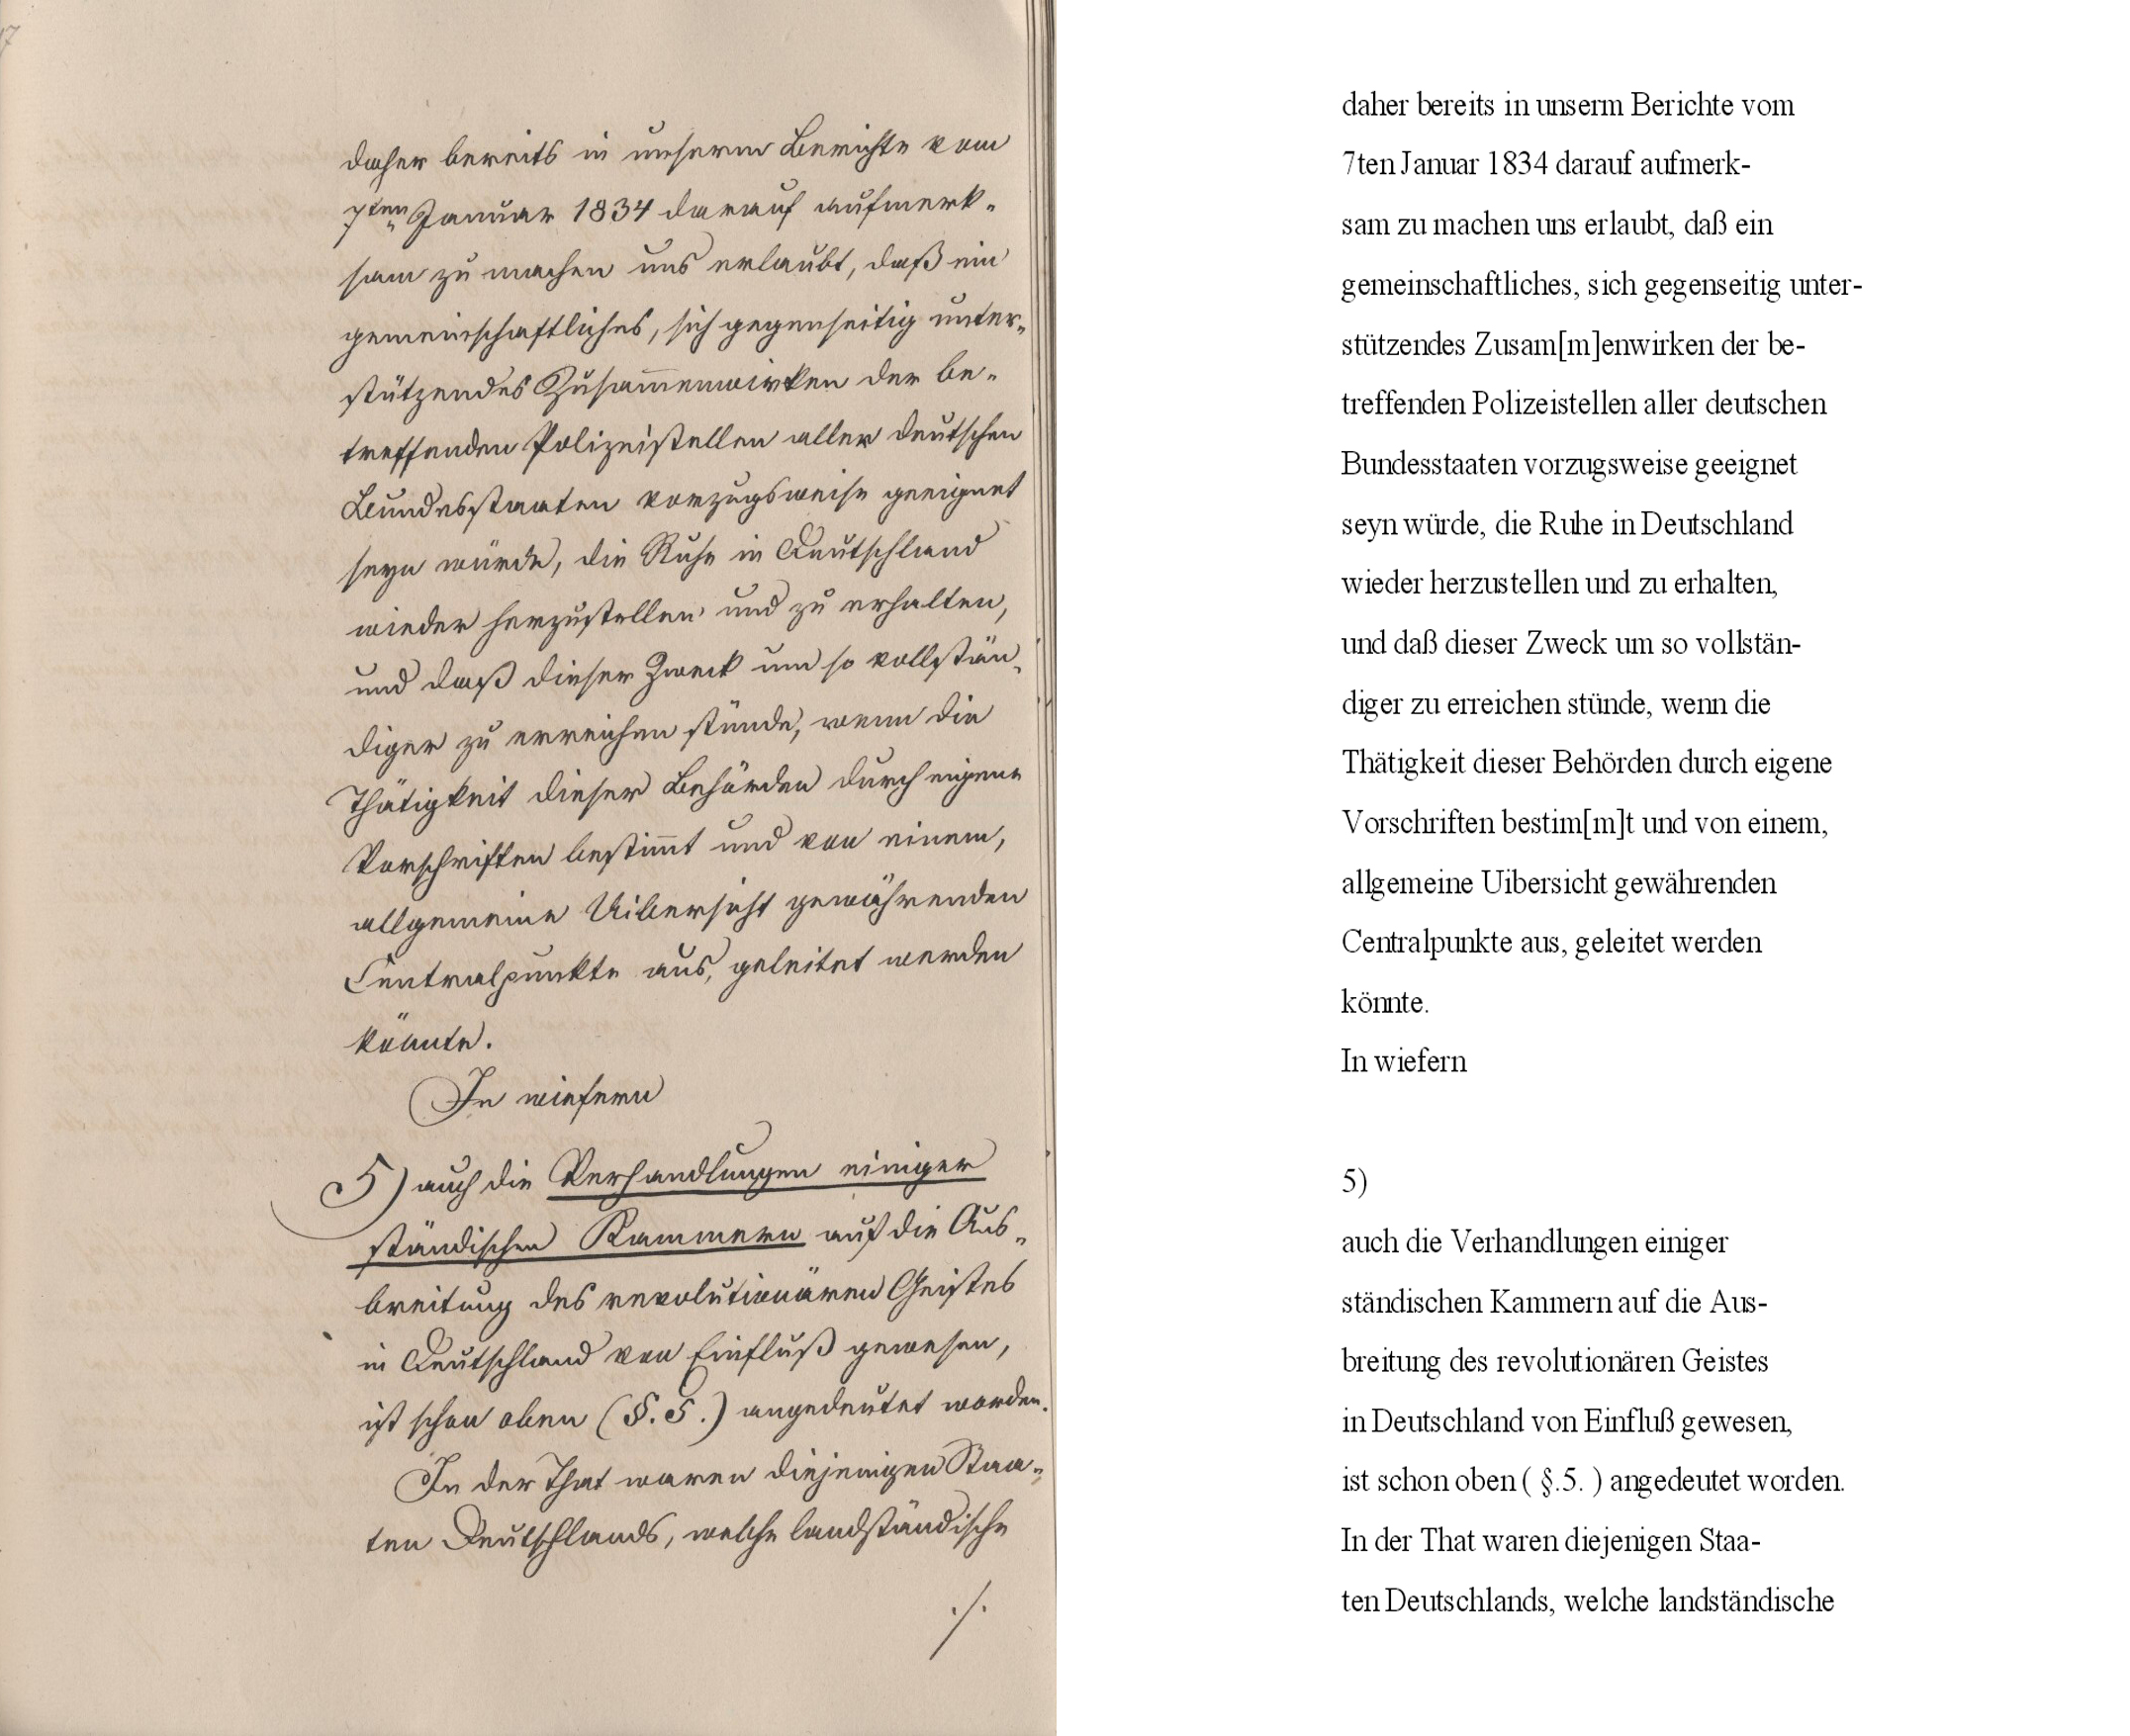 daher bereits in unserm Berichte vom
7ten Januar 1834 darauf aufmerk-
sam zu machen uns erlaubt, daß ein
gemeinschaftliches, sich gegenseitig unter-
stützendes Zusam̅enwirken der be-
treffenden Polizeistellen aller deutschen
Bundesstaaten vorzugsweise geeignet
seyn würde, die Ruhe in Deutschland
wieder herzustellen und zu erhalten,
und daß dieser Zweck um so vollstän-
diger zu erreichen stünde, wenn die
Thätigkeit dieser Behörden durch eigene
Vorschriften bestim̅t und von einem,
allgemeine Uibersicht gewährenden
Centralpunkte aus, geleitet werden
könnte.
In wiefern
5) auch die Verhandlungen einiger
ständischen Kammern auf die Aus-
breitung des revolutionären Geistes
in Deutschland von Einfluß gewesen,
ist schon oben (§.5.) angedeutet worden.
In der That waren diejenigen Staa-
ten Deutschlands, welche landständische
./.
daher bereits in unserm Berichte vom
7ten Januar 1834 darauf aufmerk-
sam zu machen uns erlaubt, daß ein
gemeinschaftliches, sich gegenseitig unter-
stützendes Zusam[m]enwirken der be-
treffenden Polizeistellen aller deutschen
Bundesstaaten vorzugsweise geeignet
seyn würde, die Ruhe in Deutschland
wieder herzustellen und zu erhalten,
und daß dieser Zweck um so vollstän-
diger zu erreichen stünde, wenn die
Thätigkeit dieser Behörden durch eigene
Vorschriften bestim[m]t und von einem,
allgemeine Uibersicht gewährenden
Centralpunkte aus, geleitet werden
könnte.
In wiefern
5)
auch die Verhandlungen einiger
ständischen Kammern auf die Aus-
breitung des revolutionären Geistes
in Deutschland von Einfluß gewesen,
ist schon oben ( §.5. ) angedeutet worden.
In der That waren diejenigen Staa-
ten Deutschlands, welche landständische